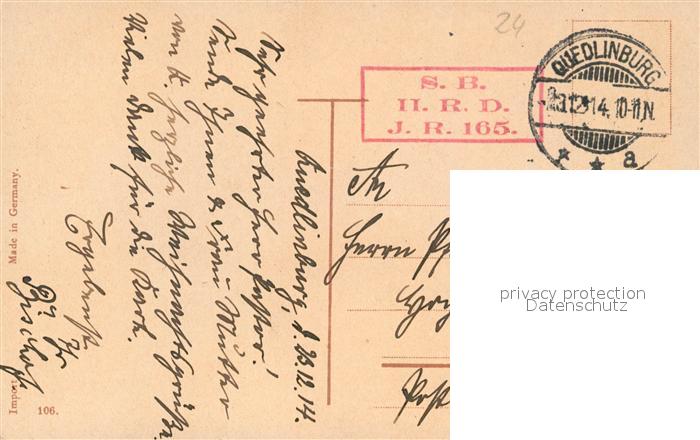 24
QUEDLINBURG
23.12.14. 10-11 N.
* * a
S. B.
II. R. D.
J. R. 165.
Quedlinburg, d. 23.12.14.
Sehr geehrter Herr Pastor!
Sende Ihnen & Frau Mutter
von K. herzliche Weihnachtsgrüße.
Vielen Dank für die Karte.
Ergebenst
Ihr
Bischof
An
Herrn
Post
privacy protection
Datenschutz
Import
Made in Germany.
106.